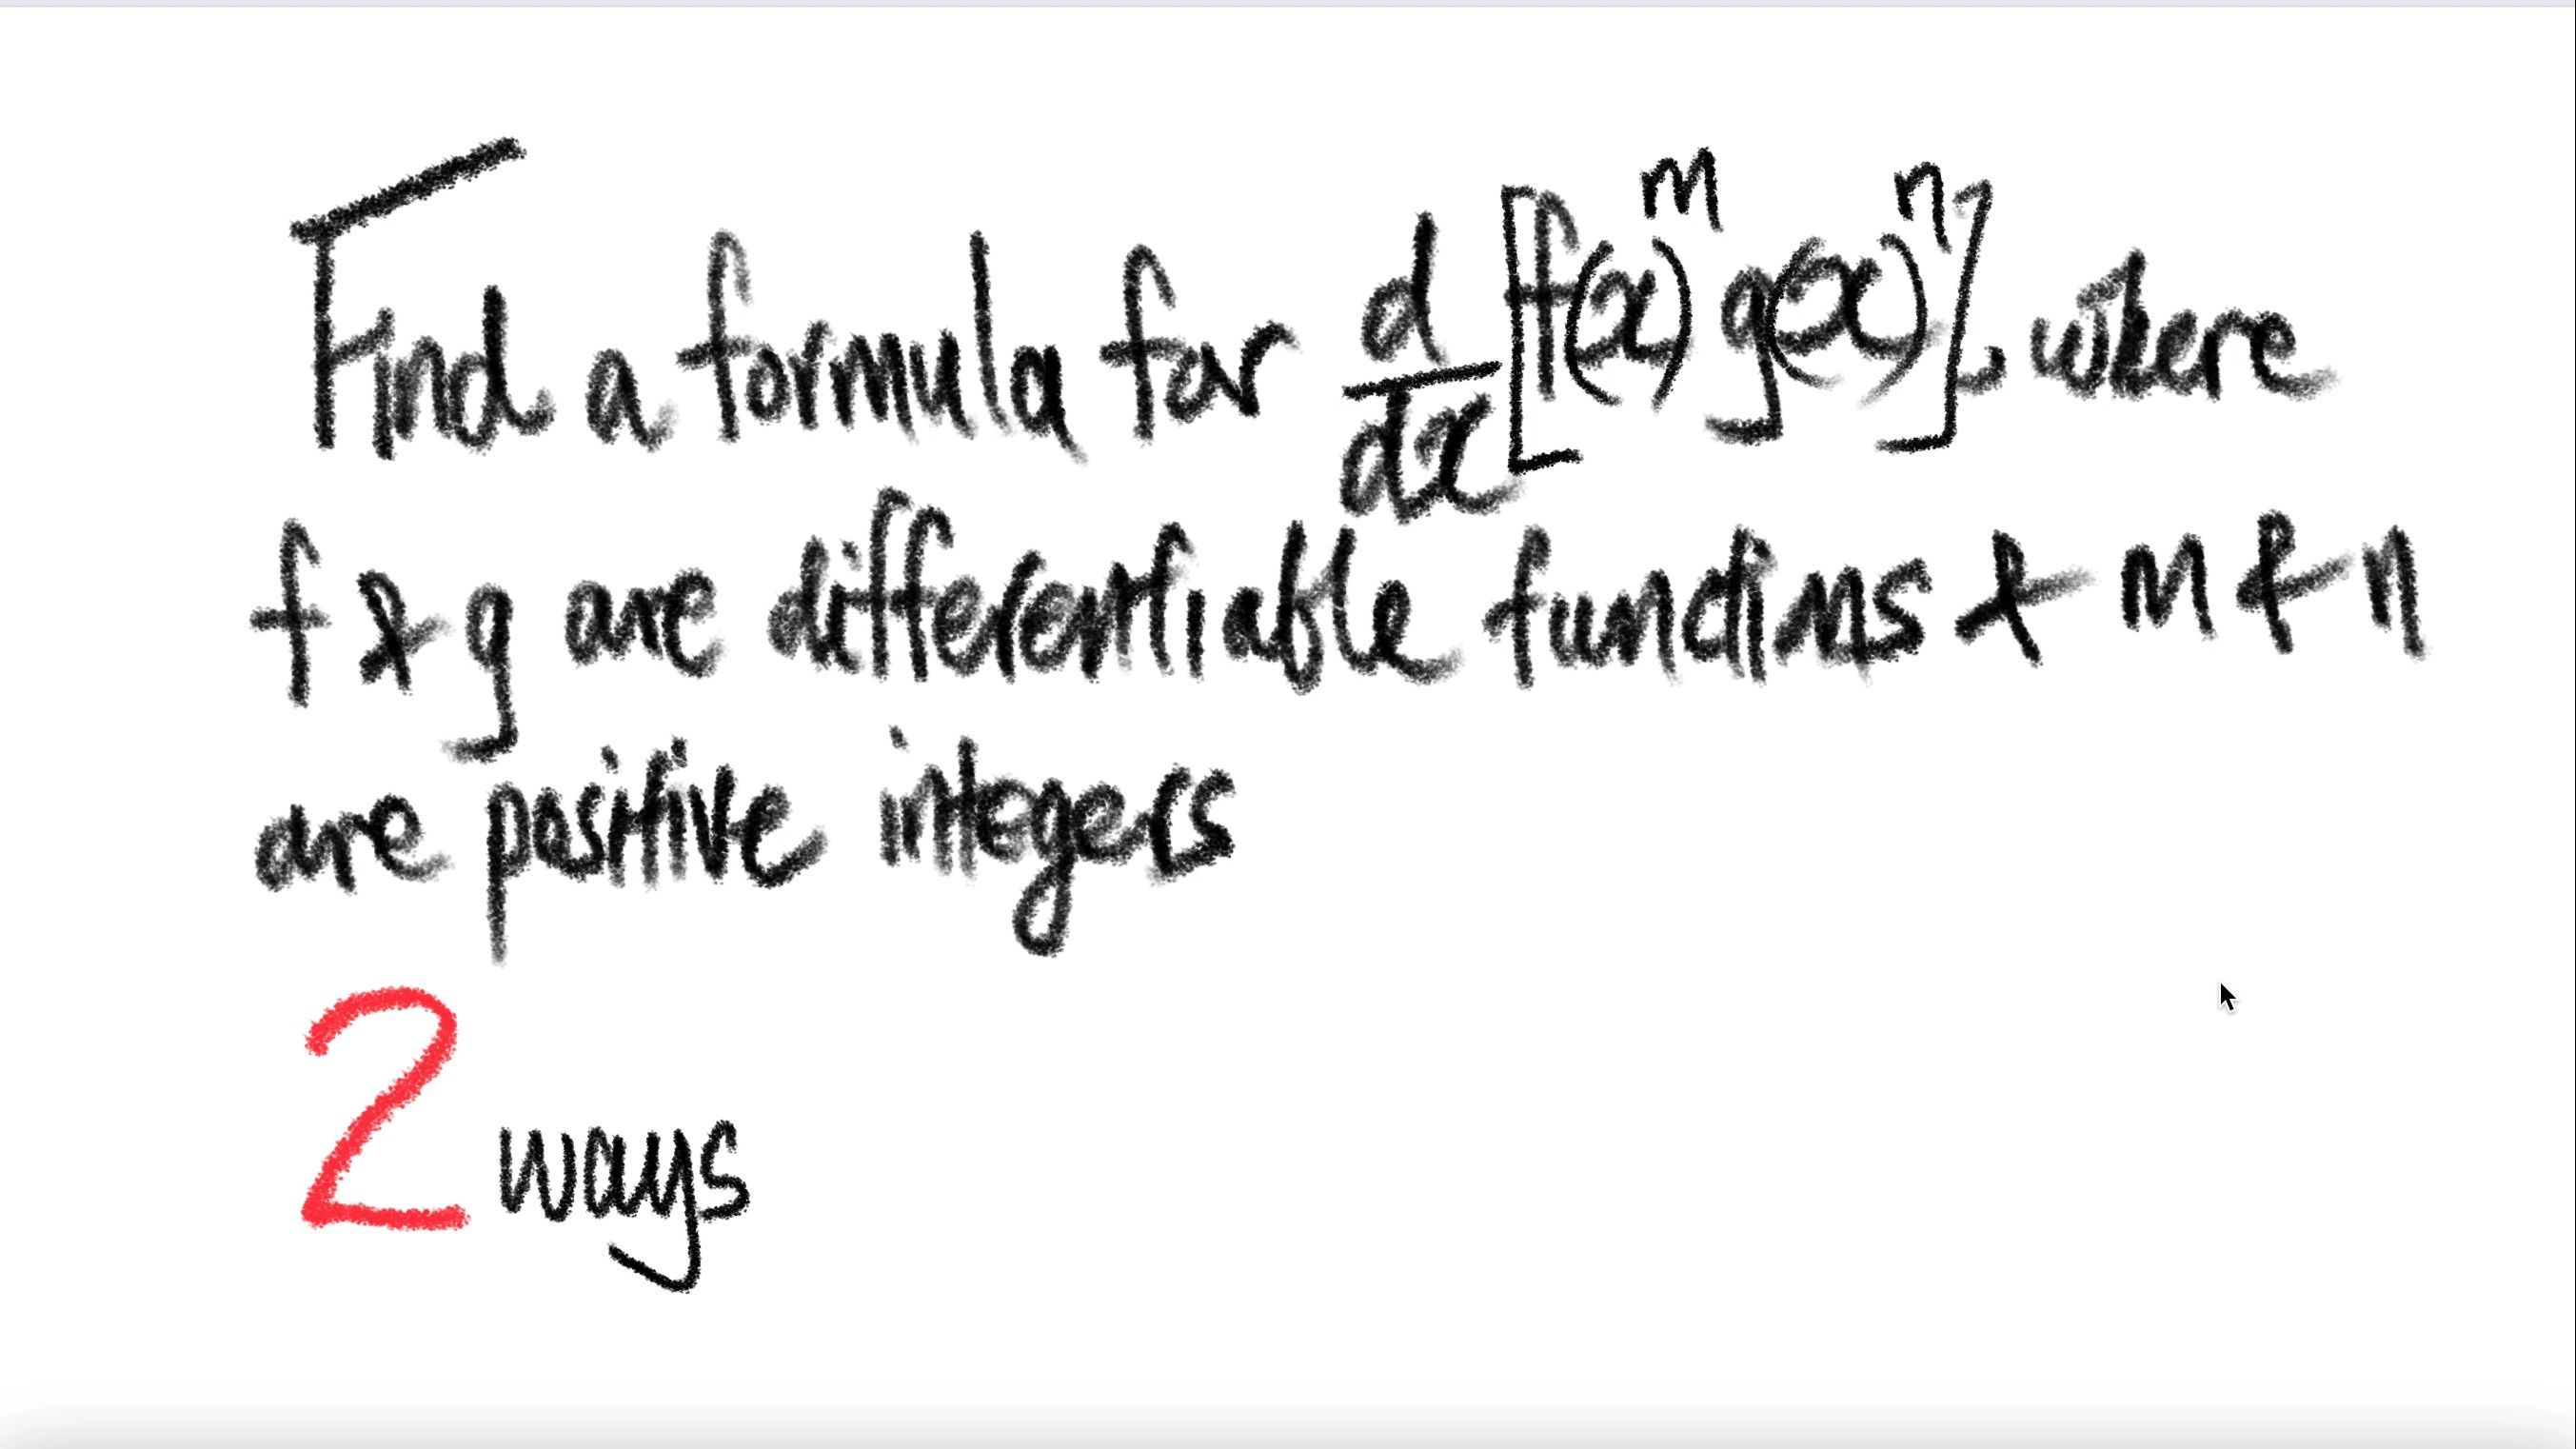 Find a formula for d/dx [f(x)^m g(x)^n], where
f & g are differentiable functions & m & n
are positive integers
2 ways